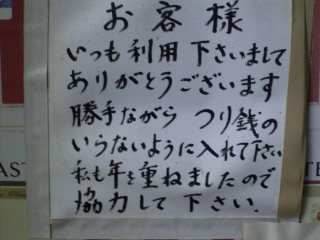 お客様
いつも利用下さいまして
ありがとうございます
勝手ながら つり銭の
いらないように入れて下さい
私も年を重ねましたので
協力して下さい.